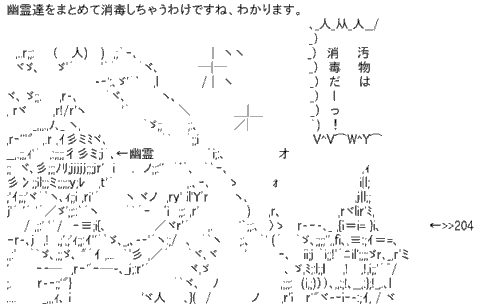 幽霊達をまとめて消毒しちゃうわけですね、わかります。
汚物は
消毒だーっ！
←幽霊
オ
←>>204